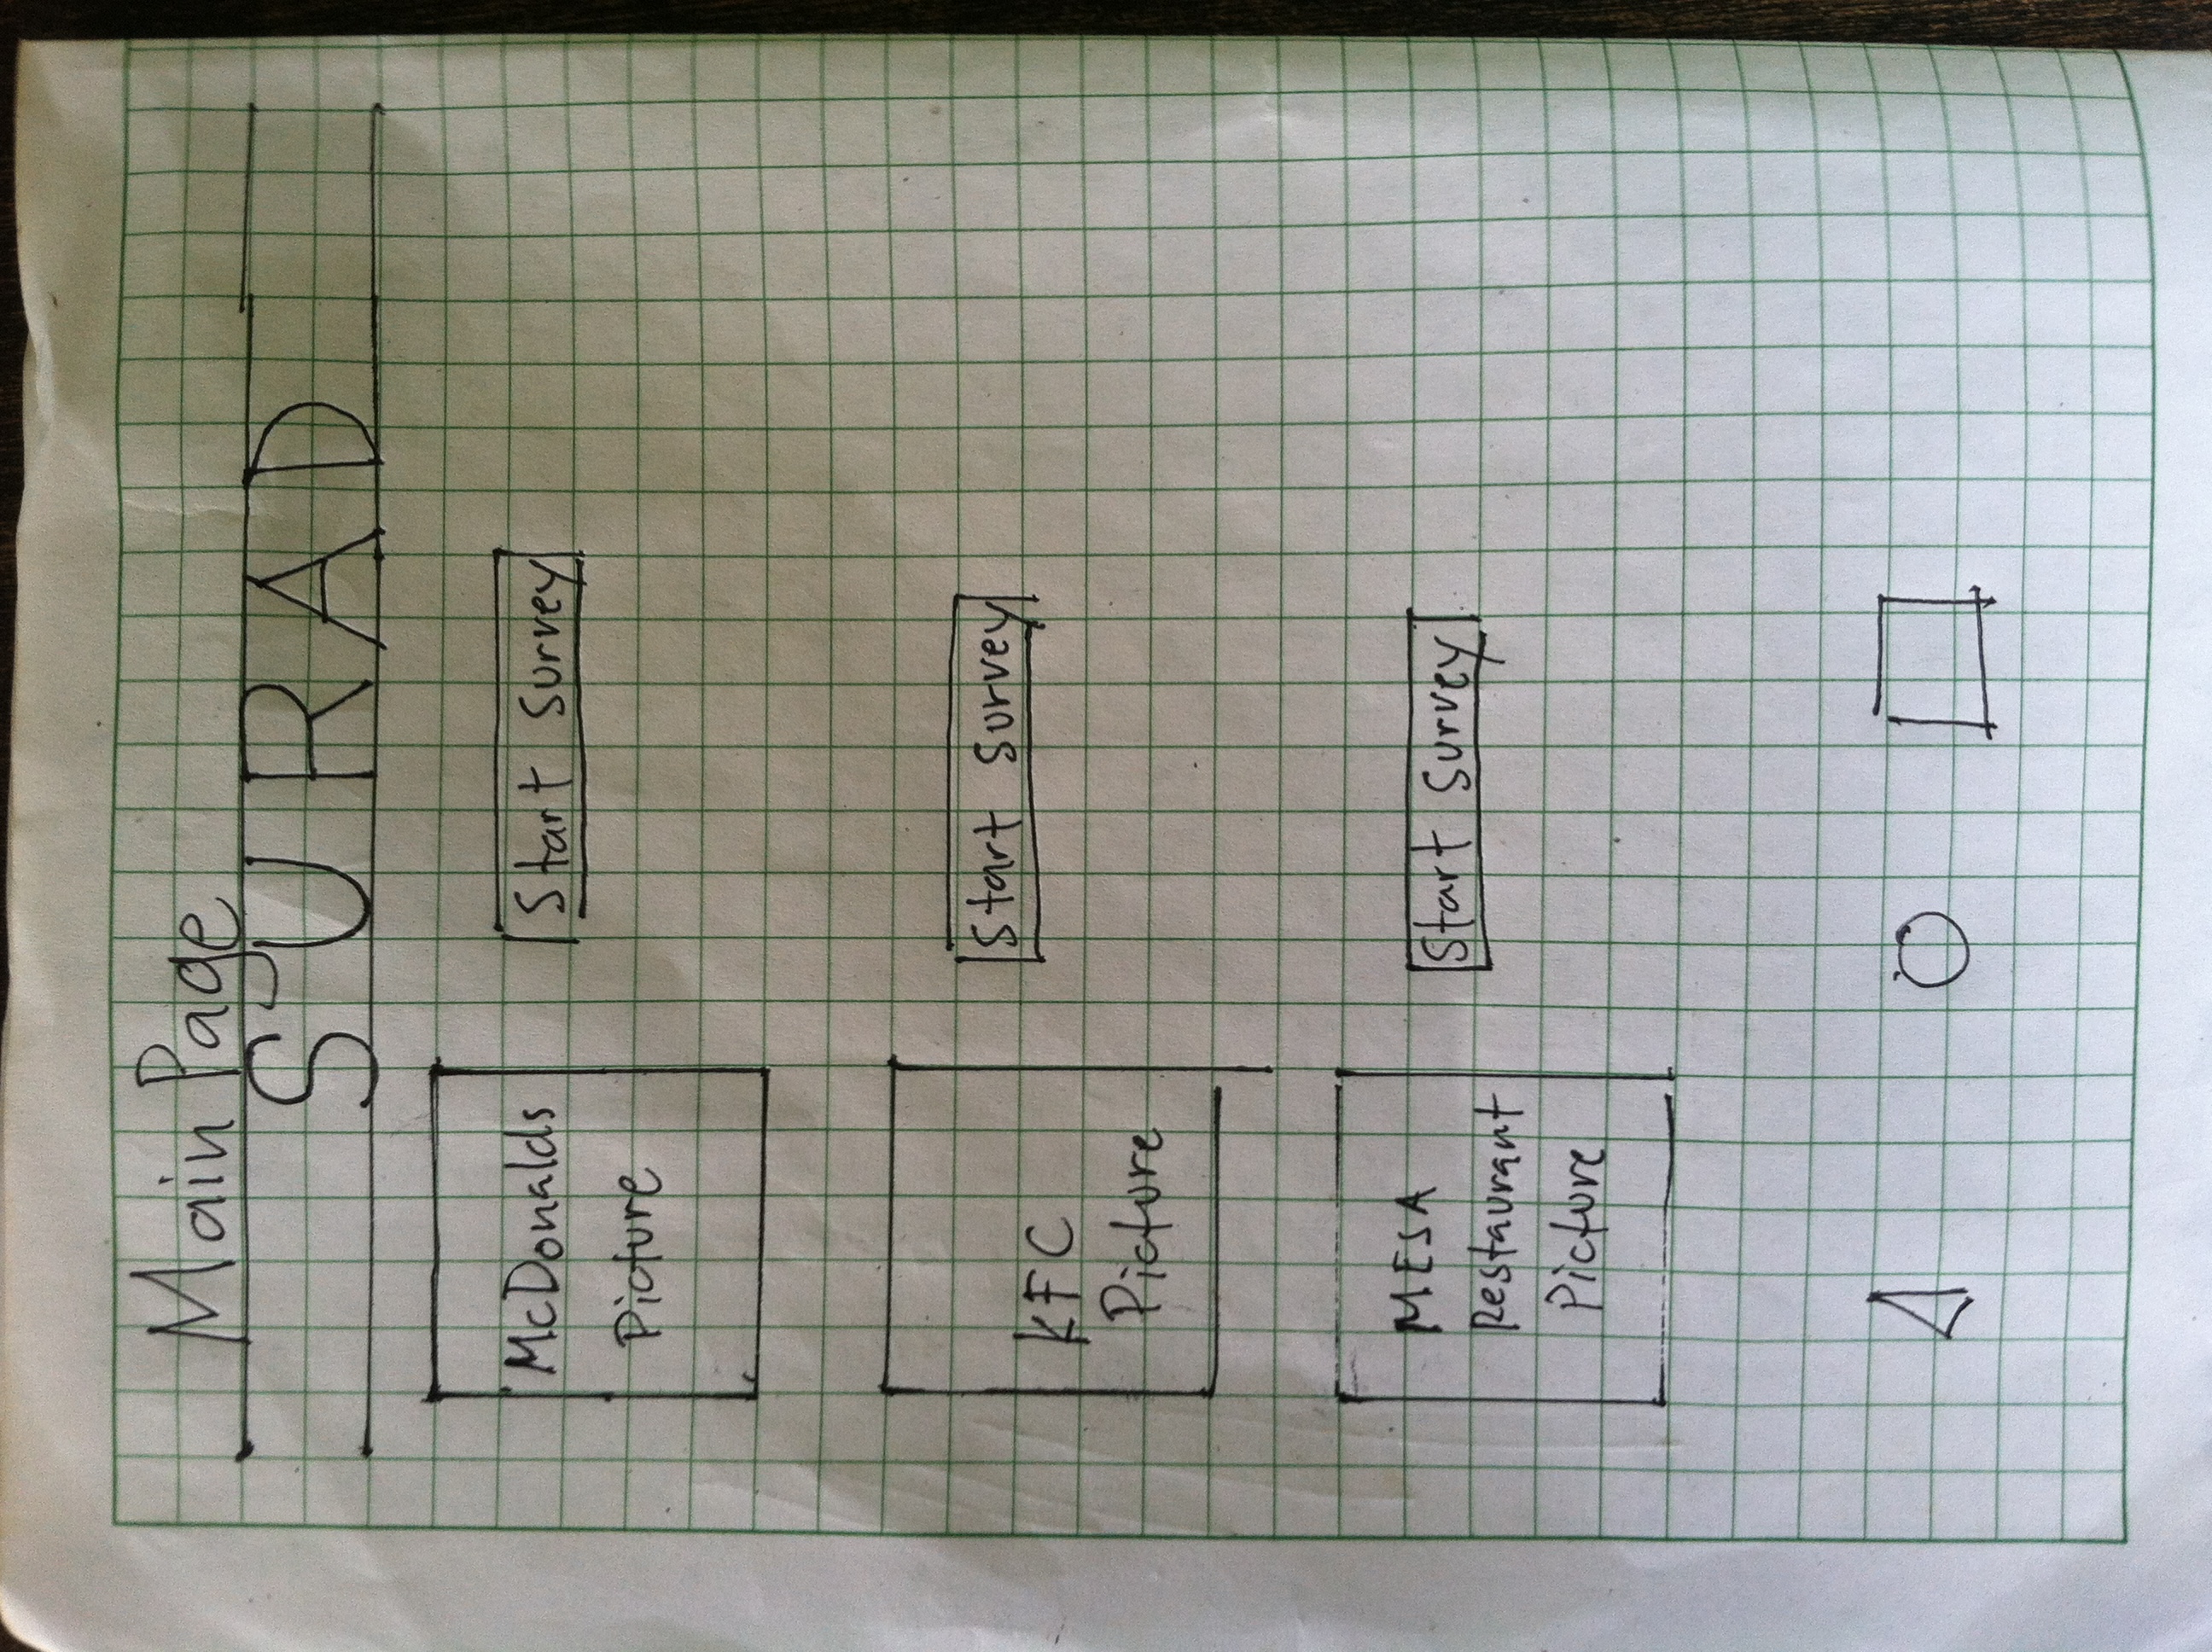 Main Page
SURAD
McDonalds
Picture
Start Survey
KFC
Picture
Start Survey
MESA
Restaurant
Picture
Start Survey